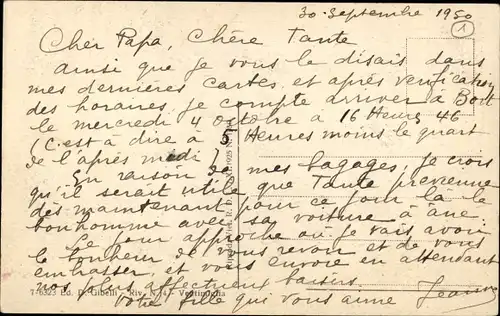 30 Septembre 1950
1
Cher Papa, Chère Tante
Ainsi que je vous le disais dans
mes dernières cartes et après verification
des horaires, je compte arriver à
le mercredi 4 octobre à 16 Heures 46
(C'est à dire à 5 Heures moins le quart
de l'après midi)
En raison de mes bagages, je crois
qu'il serait utile que Tante previenne
dès maintenant pour ce jour là le
bonhomme avec sa voiture à âne.
Le jour approche où je vais avoir
le bonheur de vous revoir et de vous
embrasser, et vous envoie en attendant
mes plus affectueux baisers.
Votre fille qui vous aime Jeanne
7-6323 Ed. D. Gibelli - Riv. N. 4 - Ventimiglia